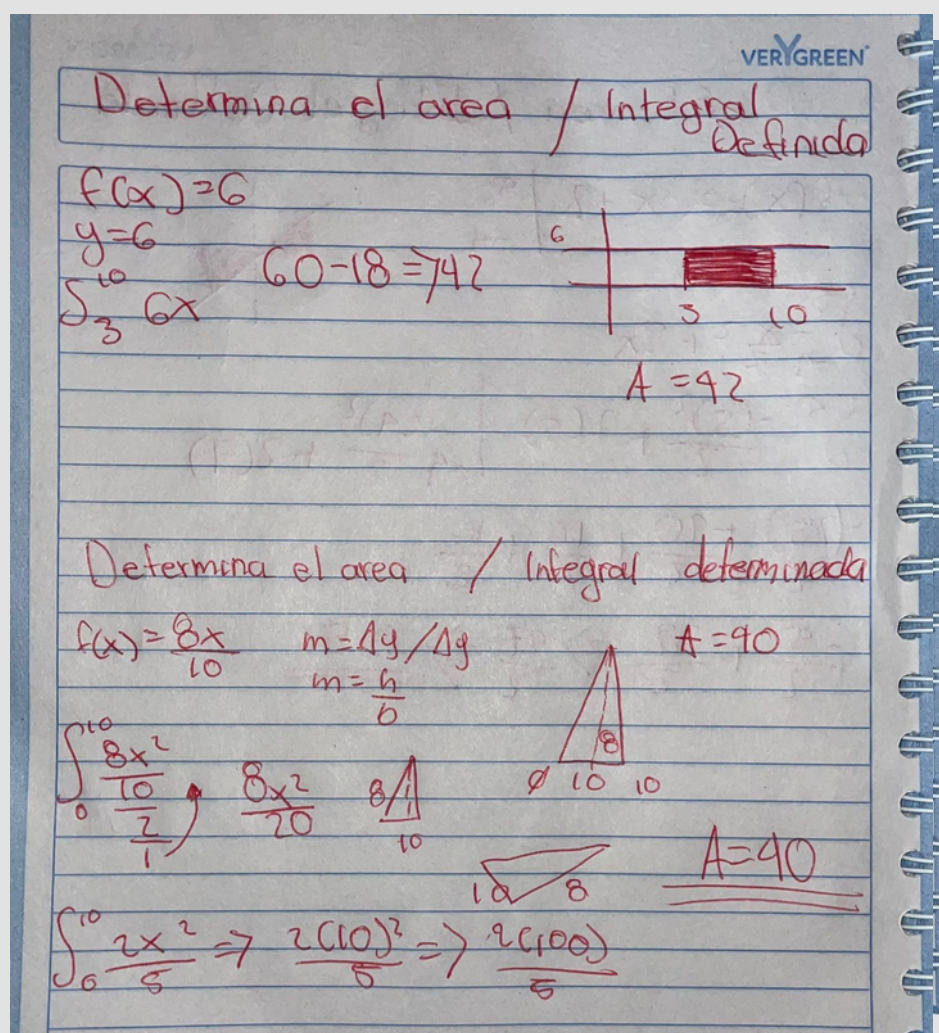 VERYGREEN
Determina el area / Integral
Definida
f(x)=6
y=6
60-18=>42
∫₃¹⁰ 6x
6
3 10
A=42
Determina el area / Integral determinada
f(x)=8x/10 m=Δy/Δy A=40
m=h/b
8
0 10 10
∫₀¹⁰ 8x²/10/2/1 , 8x²/20 8 10
10 8
A=40
∫₀¹⁰ 2x²/5 => 2(10)²/5 => 2(100)/5